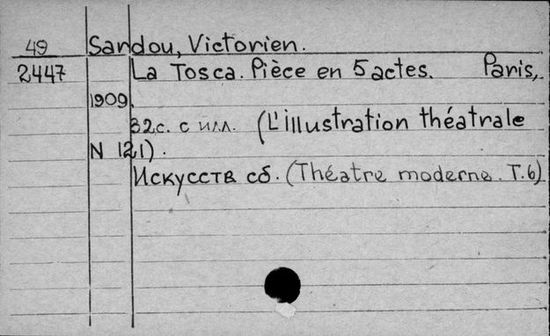 49 Sardou, Victorien.
2447 La Tosca. Pièce en 5 actes. Paris,
1909.
32с. с илл. (L'illustration théatrale
N 121).
Искусств сб. (Théatre moderne. T.6)